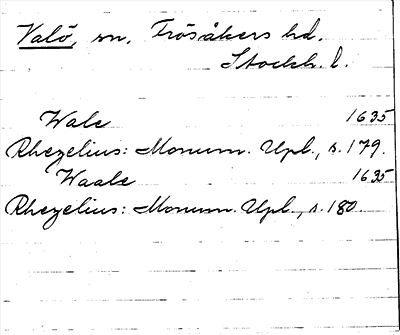 Valö, sn, Frösåkers hd.
Stockh. l.
Wale 1635
Rhezelius: Monum. Upl., s. 179.
Waale 1635
Rhezelius: Monum. Upl., s. 180.